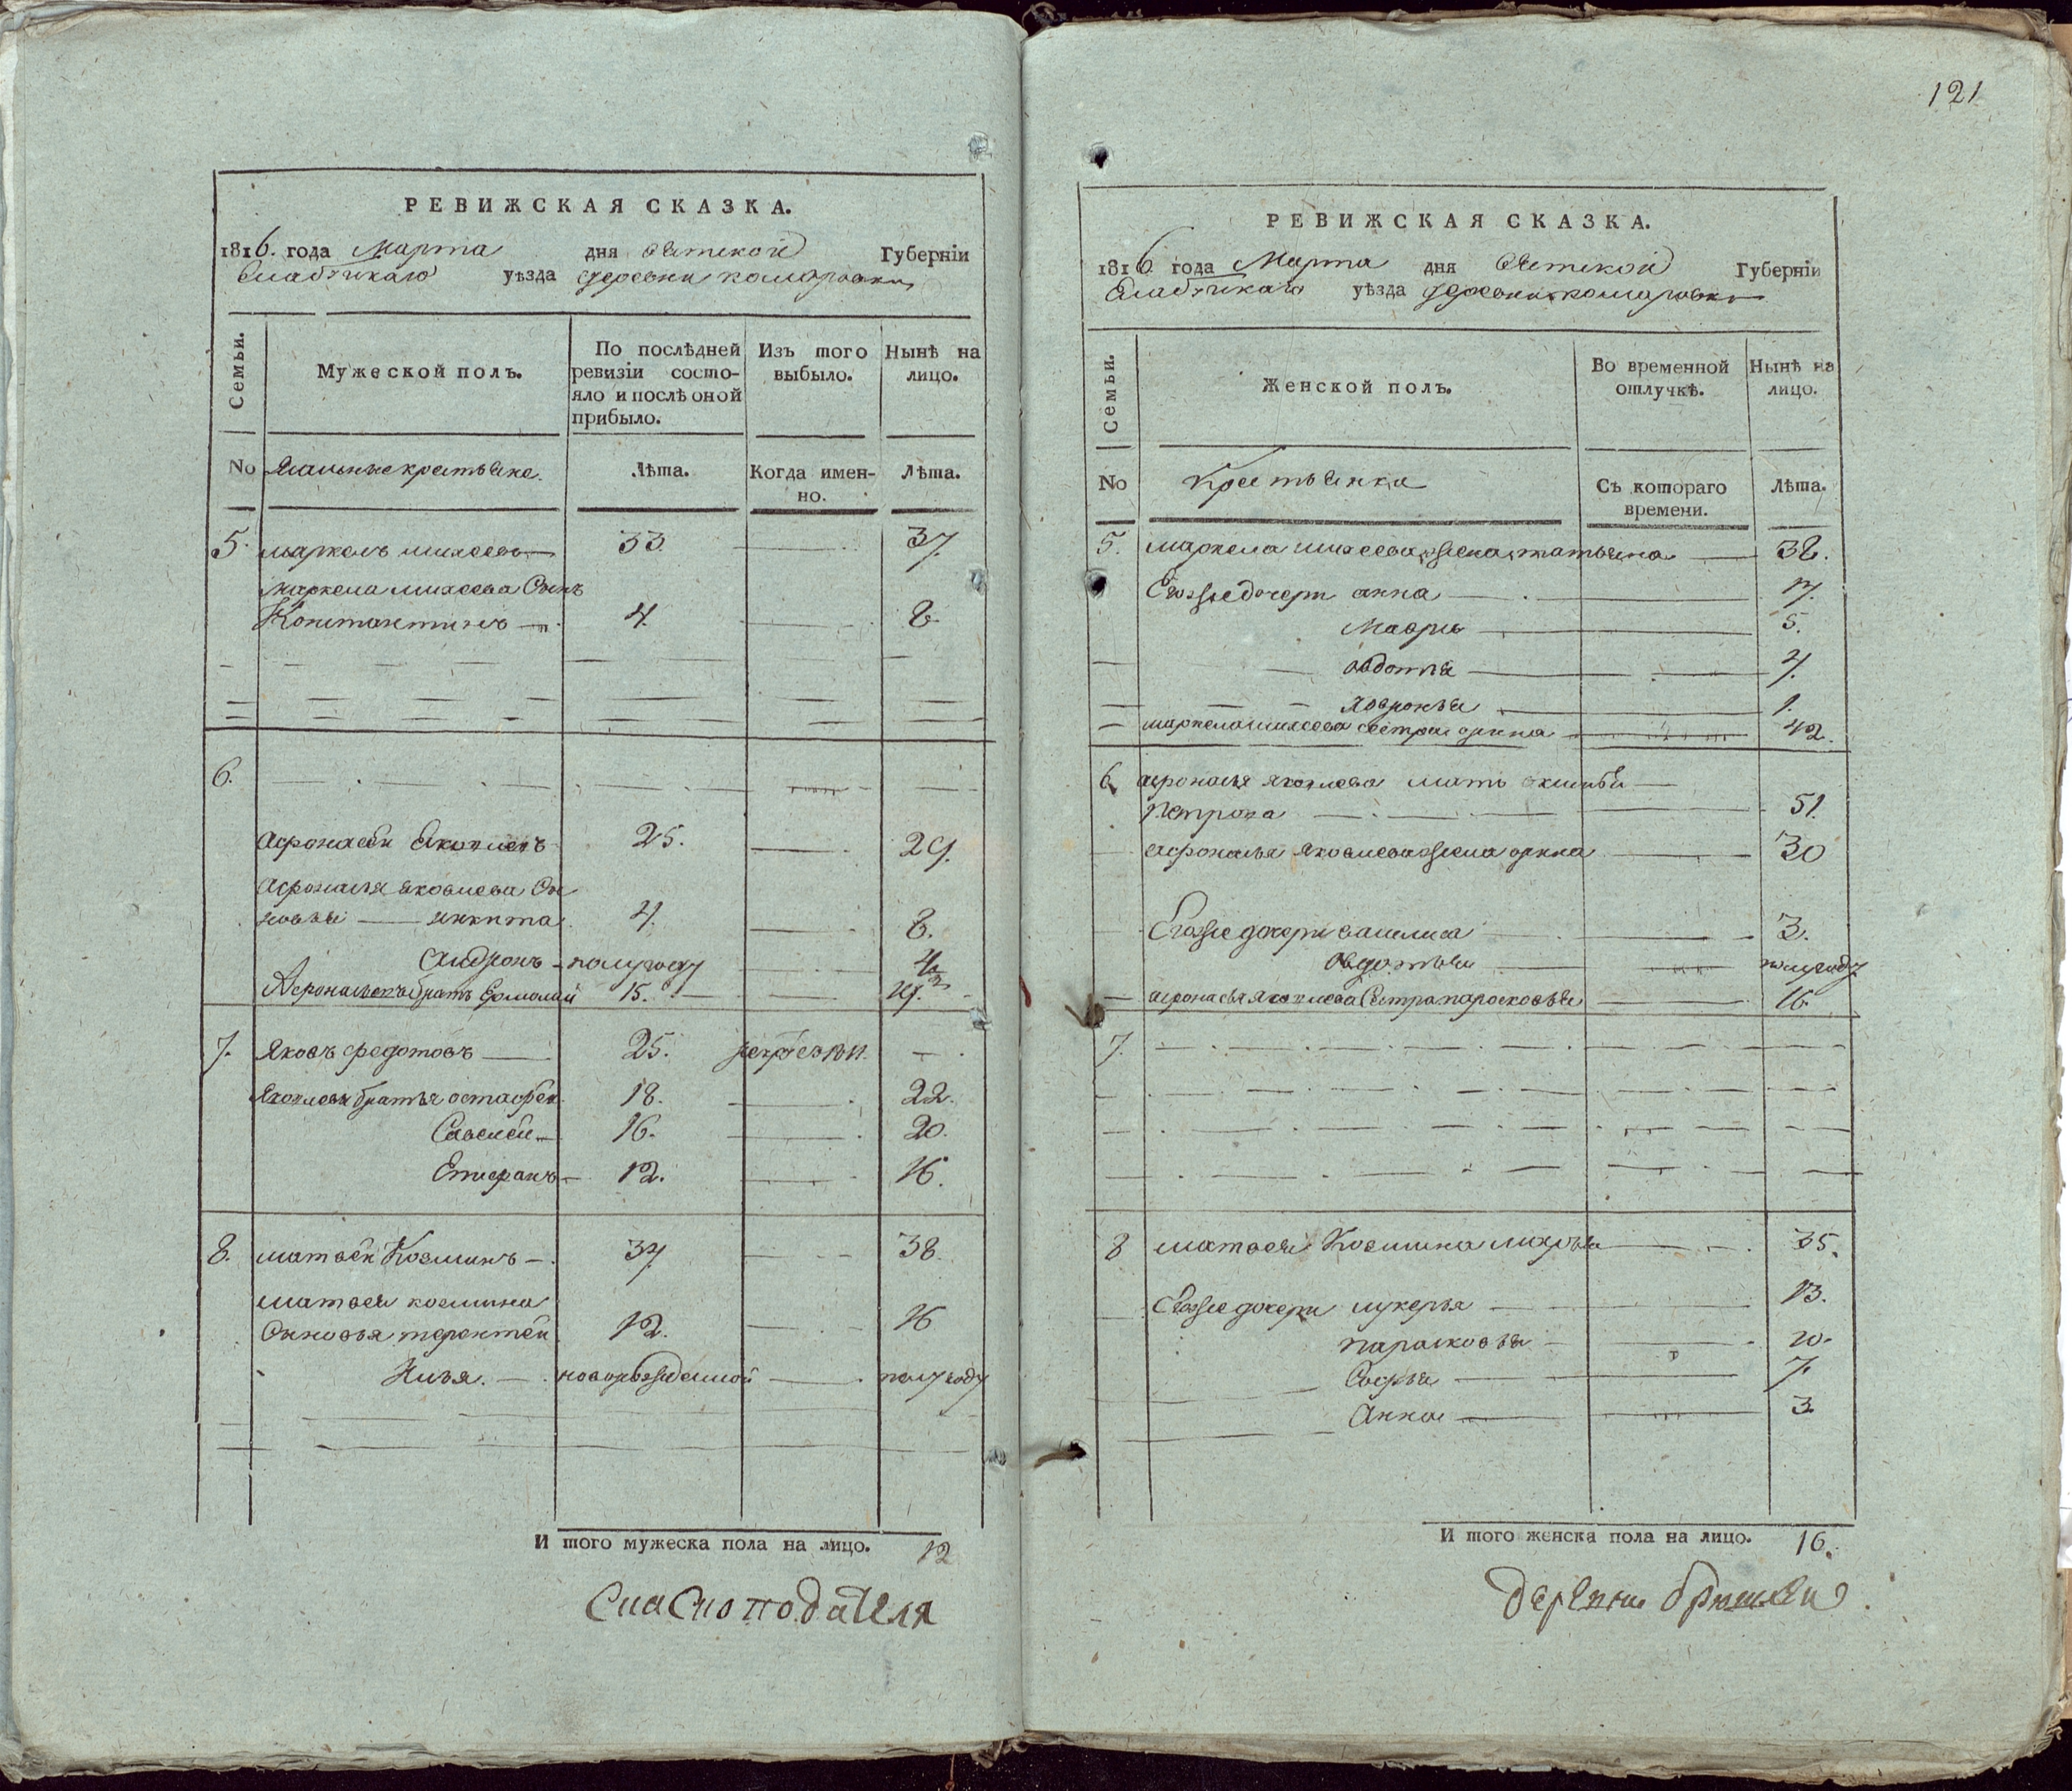 РЕВИЖСКАЯ СКАЗКА.
1816. года Марта дня Вятской Губерніи
Елабужскаго уѣзда деревни комаровки
Семьи.
Мужеской полъ.
По послѣдней ревизіи состо-
яло и послѣ оной
прибыло.
Изъ того
выбыло.
Нынѣ на
лицо.
No крестьяне. Лѣта. Когда имен-
но. Лѣта.
5. маркелъ михеевъ 33. 37.
маркела михеева Сынъ
Константинъ 4. 8
6.
Афонасеи Яковлевъ 25. 29.
Афонасья яковлева Сы
новья никита 4. 8.
Андронъ полугоду 4½
Афонасьевъ братъ Ермолай 15. 19.
7. Яковъ федотовъ 25.
Яковлевы братья остафеи 18. 22.
Савелеи 16. 20.
Епифанъ 12. 16.
8. матвеи Козминъ 34 38.
матвея козмина
Сыновья терентеи 12. 16
Илья. новорожденной полугоду
И того мужеска пола на лицо. 12
121
РЕВИЖСКАЯ СКАЗКА.
1816 года Марта дня Вятской Губерніи
Елабужскаго уѣзда деревни комаровки
Семьи.
Женской полъ.
Во временной
отлучкѣ.
Нынѣ на
лицо.
No Крестьянки Съ котораго
времени. Лѣта.
5. маркела михеева жена татьяна 38.
Егожъ дочери анна 7.
Мавра 5.
авдотья 4.
1.
маркела михеева сестра анна 42.
6. афонасья яковлева мать
Петрова 51.
афонасья яковлева жена анна 30
Егоже дочери василиса 3.
Овдотья полугоду
афонасья яковлева Сестра парасковья 16
7.
8 матвея Козмина 35.
Егоже дочери лукерья 13.
парасковья 10.
Софья 7.
Анна 3
И того женска пола на лицо. 16.